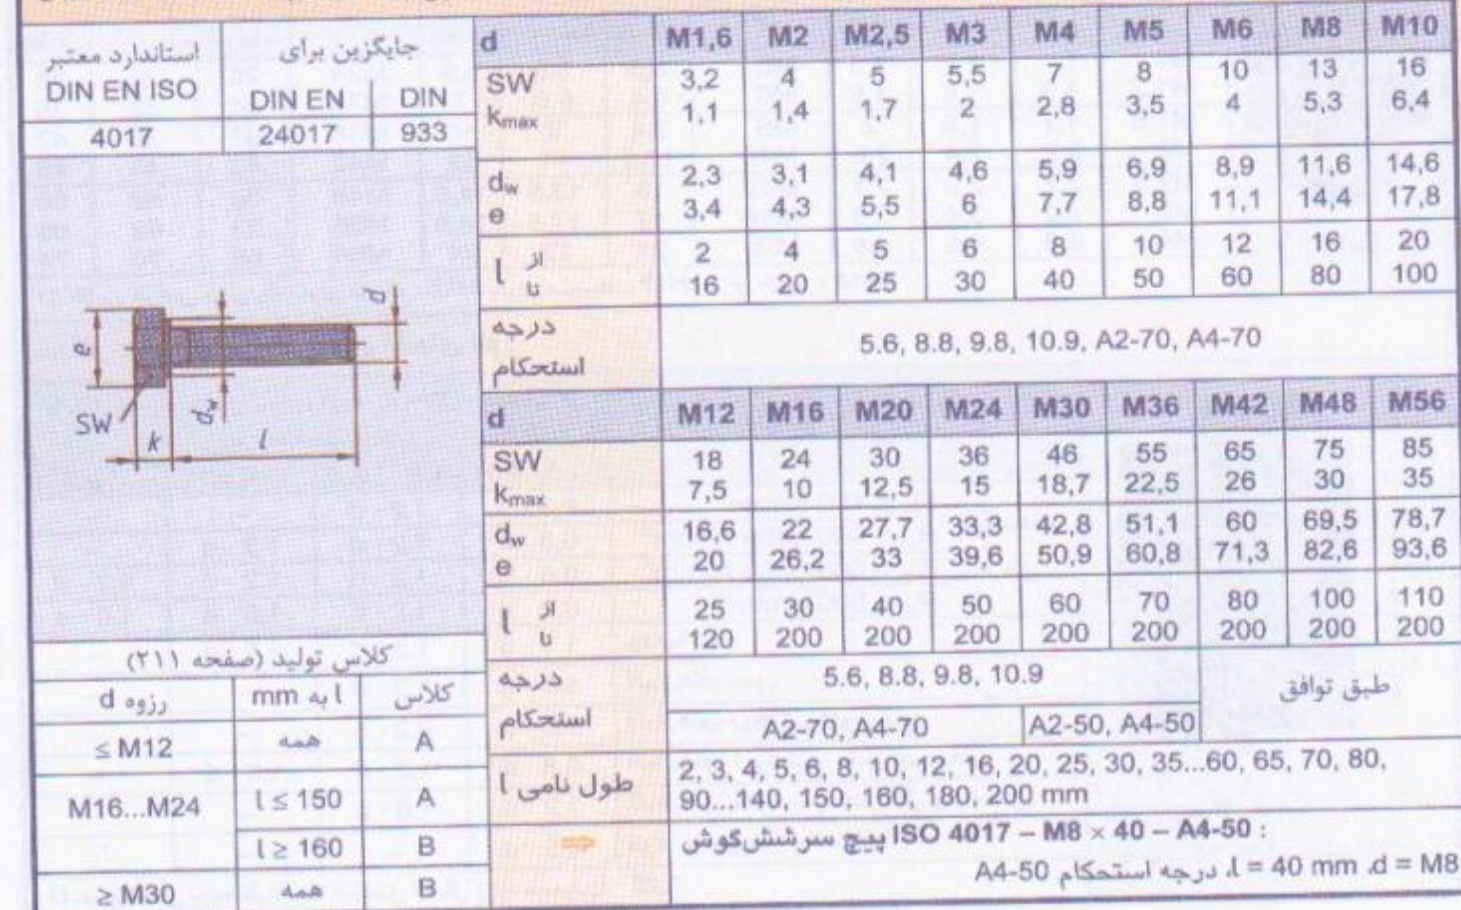 استاندارد معتبر جایگزین برای
DIN EN ISO DIN EN DIN
4017 24017 933
e
SW
k
d_w
l
d
کلاس تولید (صفحه ۲۱۱)
رزوه d l به mm کلاس
≤ M12 همه A
M16...M24 l ≤ 150 A
l ≥ 160 B
≥ M30 همه B
d M1,6 M2 M2,5 M3 M4 M5 M6 M8 M10
SW 3,2 4 5 5,5 7 8 10 13 16
k_max 1,1 1,4 1,7 2 2,8 3,5 4 5,3 6,4
d_w 2,3 3,1 4,1 4,6 5,9 6,9 8,9 11,6 14,6
e 3,4 4,3 5,5 6 7,7 8,8 11,1 14,4 17,8
l از 2 4 5 6 8 10 12 16 20
تا 16 20 25 30 40 50 60 80 100
درجه استحکام 5.6, 8.8, 9.8, 10.9, A2-70, A4-70
d M12 M16 M20 M24 M30 M36 M42 M48 M56
SW 18 24 30 36 46 55 65 75 85
k_max 7,5 10 12,5 15 18,7 22,5 26 30 35
d_w 16,6 22 27,7 33,3 42,8 51,1 60 69,5 78,7
e 20 26,2 33 39,6 50,9 60,8 71,3 82,6 93,6
l از 25 30 40 50 60 70 80 100 110
تا 120 200 200 200 200 200 200 200 200
درجه 5.6, 8.8, 9.8, 10.9 طبق توافق
استحکام A2-70, A4-70 A2-50, A4-50
طول نامی l 2, 3, 4, 5, 6, 8, 10, 12, 16, 20, 25, 30, 35...60, 65, 70, 80,
90...140, 150, 160, 180, 200 mm
پیچ سر شش‌گوش ISO 4017 – M8 × 40 – A4-50 :
d = M8، l = 40 mm، درجه استحکام A4-50